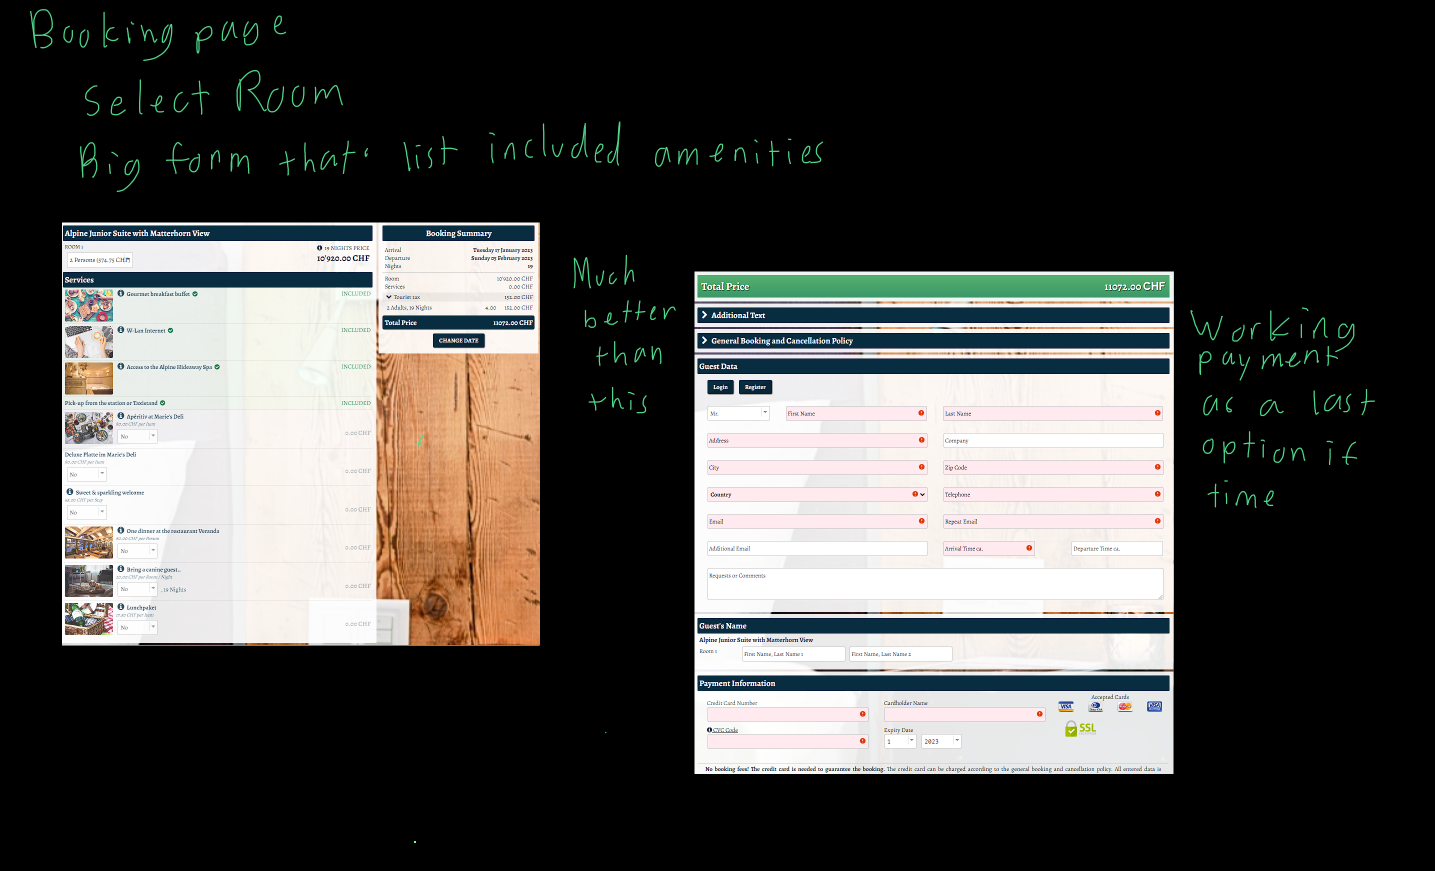 Booking page
Select Room
Big form that list included amenities
Alpine Junior Suite with Matterhorn View
ROOM 1
19 NIGHTS PRICE
2 Persons (574.75 CHF)
10'920.00 CHF
Services
Gourmet breakfast buffet
INCLUDED
W-Lan Internet
INCLUDED
Access to the Alpine Hideaway Spa
INCLUDED
Pick-up from the station or Taxistand
INCLUDED
Apéritiv at Marie's Deli
No
0.00 CHF
Deluxe Platte im Marie's Deli
No
0.00 CHF
Sweet & sparkling welcome
No
0.00 CHF
One dinner at the restaurant Veranda
No
0.00 CHF
Bring a canine guest..
No
..19 Nights
0.00 CHF
Lunchpaket
No
0.00 CHF
Booking Summary
Arrival Tuesday 17 January 2023
Departure Sunday 05 February 2023
Nights 19
Room 10'920.00 CHF
Services 0.00 CHF
Tourist tax 152.00 CHF
2 Adults, 19 Nights 4.00 152.00 CHF
Total Price 11072.00 CHF
CHANGE DATE
Much
better
than
this
Total Price 11072.00 CHF
Additional Text
General Booking and Cancellation Policy
Guest Data
Login Register
Mr. First Name Last Name
Address Company
City Zip Code
Country Telephone
Email Repeat Email
Additional Email Arrival Time ca. Departure Time ca.
Requests or Comments
Guest's Name
Alpine Junior Suite with Matterhorn View
Room 1 First Name, Last Name 1 First Name, Last Name 2
Payment Information
Credit Card Number Cardholder Name Accepted Cards
VISA
CVC Code Expiry Date SSL
1 2023
No booking fees! The credit card is needed to guarantee the booking. The credit card can be charged according to the general booking and cancellation policy. All entered data is
Working
payment
as a last
option if
time